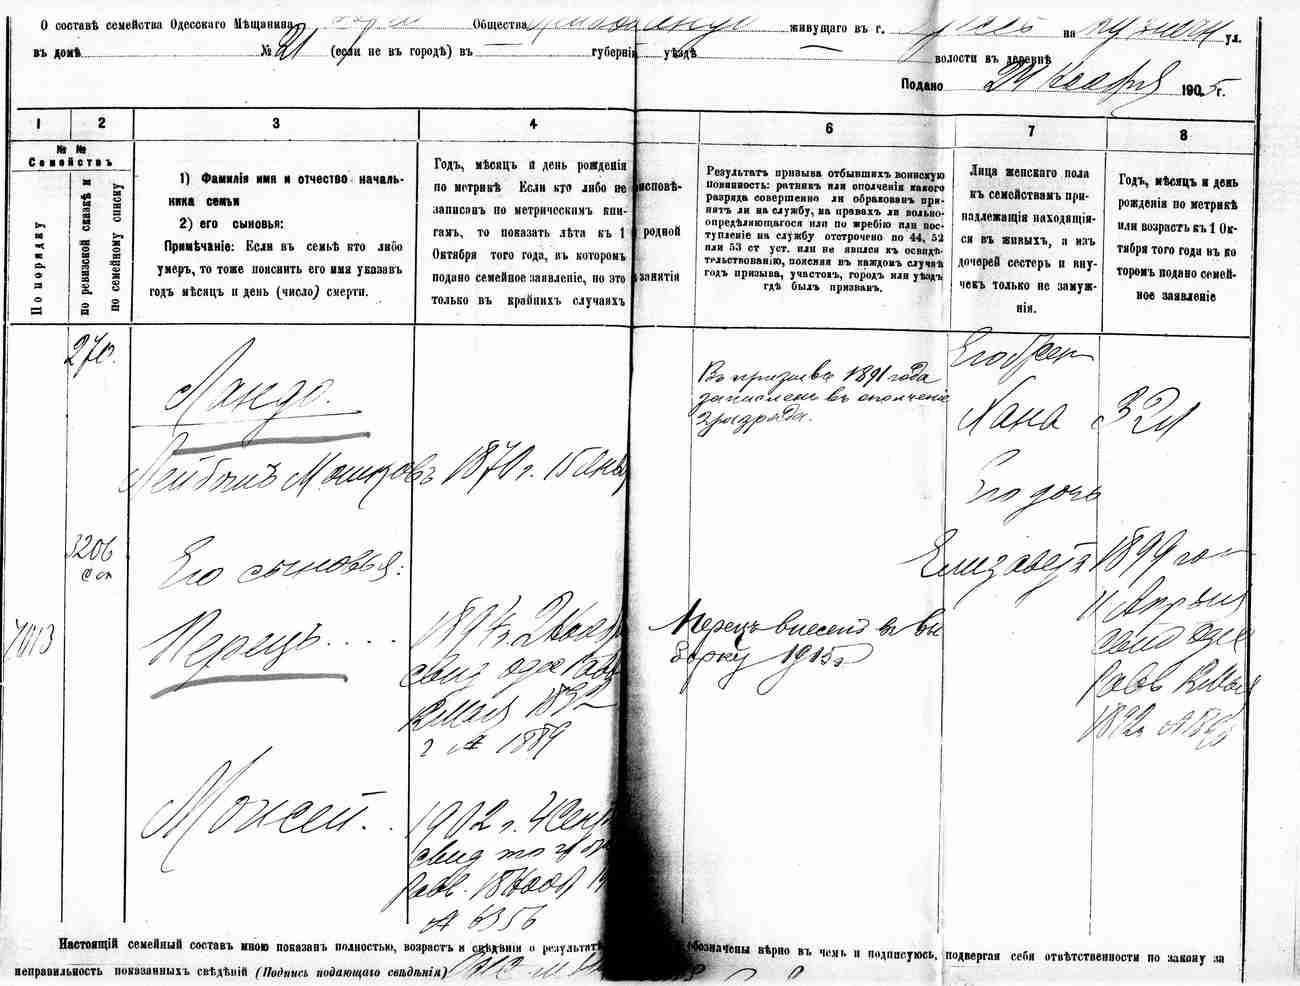 О составѣ семейства Одесскаго Мѣщанина Общества живущаго въ г. на ул.
въ домѣ № 21 (если не въ городѣ) въ — губерніи уѣздѣ — волости въ деревнѣ
Подано 24 Ноября 1905 г.
1 2 3 4 6 7 8
№ №
Семействъ
По порядку
по ревизской сказкѣ и
по семейному списку
1) Фамилія имя и отчество началь-
ника семьи
2) его сыновья:
Примѣчаніе: Если въ семьѣ кто либо
умеръ, то тоже пояснить его имя указавъ
годъ мѣсяцъ и день (число) смерти.
Годъ, мѣсяцъ и день рожденія
по метрикѣ Если кто либо не
записанъ по метрическим кни-
гамъ, то показать лѣта къ 1
Октября того года, въ которомъ
подано семейное заявленіе, но это
только въ крайнихъ случаяхъ
исповѣ-
родной
занятія
Результатъ призыва отбывшихъ воинскую
повинность: ратникъ или ополченія какого
разряда совершенно ли обракованъ при-
нятъ ли на службу, на правахъ ли вольно-
опредѣляющагося или по жребію или пос-
тупленіе на службу отсрочено по 44, 52
или 53 ст уст. или не явился къ освидѣ-
тельствованію, поясняя въ каждомъ случаѣ
годъ призыва, участокъ, городъ или уѣздъ
гдѣ былъ призванъ.
Лица женскаго пола
къ семействамъ при-
надлежащія находящія-
ся въ живыхъ, а изъ
дочерей сестеръ и вну-
чекъ только не замуж-
нія.
Годъ, мѣсяцъ и день
рожденія по метрикѣ
или возрастъ къ 1 Ок-
тября того года въ ко
торомъ подано семей-
ное заявленіе
270.
Ландо.
Лейбишъ Мошковъ 1870 г. 15
Въ призывѣ 1891 года
зачисленъ въ ополченіе
2 разряда.
Его жен
Хана 32 л
Его дочь
Елизавета 1899 го
11 Апрѣля
свид Одес
Равв
3206
Его сыновья:
7013
Перецъ....
1894 г. 2 Нояб
свид Одес Равв
г № 1889
Перецъ внесенъ въ вы
борку 1915 г
Моисей..
1902 г. 4 Сент
свид того
Равв. 18 Нояб
№ 6356
Настоящій семейный составъ мною показанъ полностью, возрастъ и свѣдѣнія о результатѣ обозначены вѣрно въ чемъ и подписуюсь, подвергая себя отвѣтственности по закону за
неправильность показанныхъ свѣдѣній (Подпись подающаго свѣдѣнія)